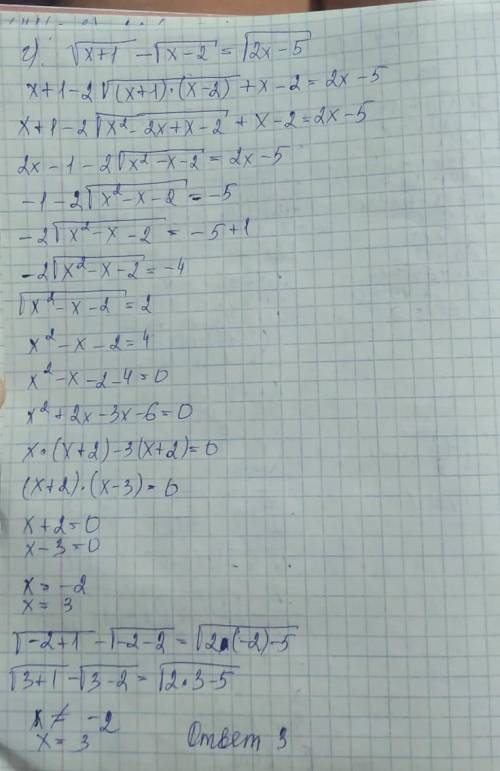 г) √x+1 - √x-2 = √2x-5
x+1-2√(x+1)·(x-2) + x-2 = 2x-5
x+1-2√x²-2x+x-2 + x-2=2x-5
2x-1-2√x²-x-2 = 2x-5
-1-2√x²-x-2 = -5
-2√x²-x-2 = -5+1
-2√x²-x-2 = -4
√x²-x-2 = 2
x²-x-2=4
x²-x-2-4=0
x²+2x-3x-6=0
x·(x+2)-3(x+2)=0
(x+2)·(x-3)=0
x+2=0
x-3=0
x=-2
x=3
√-2+1 - √-2-2 = √2·(-2)-5
√3+1 - √3-2 = √2·3-5
x ≠ -2
x = 3 Ответ 3